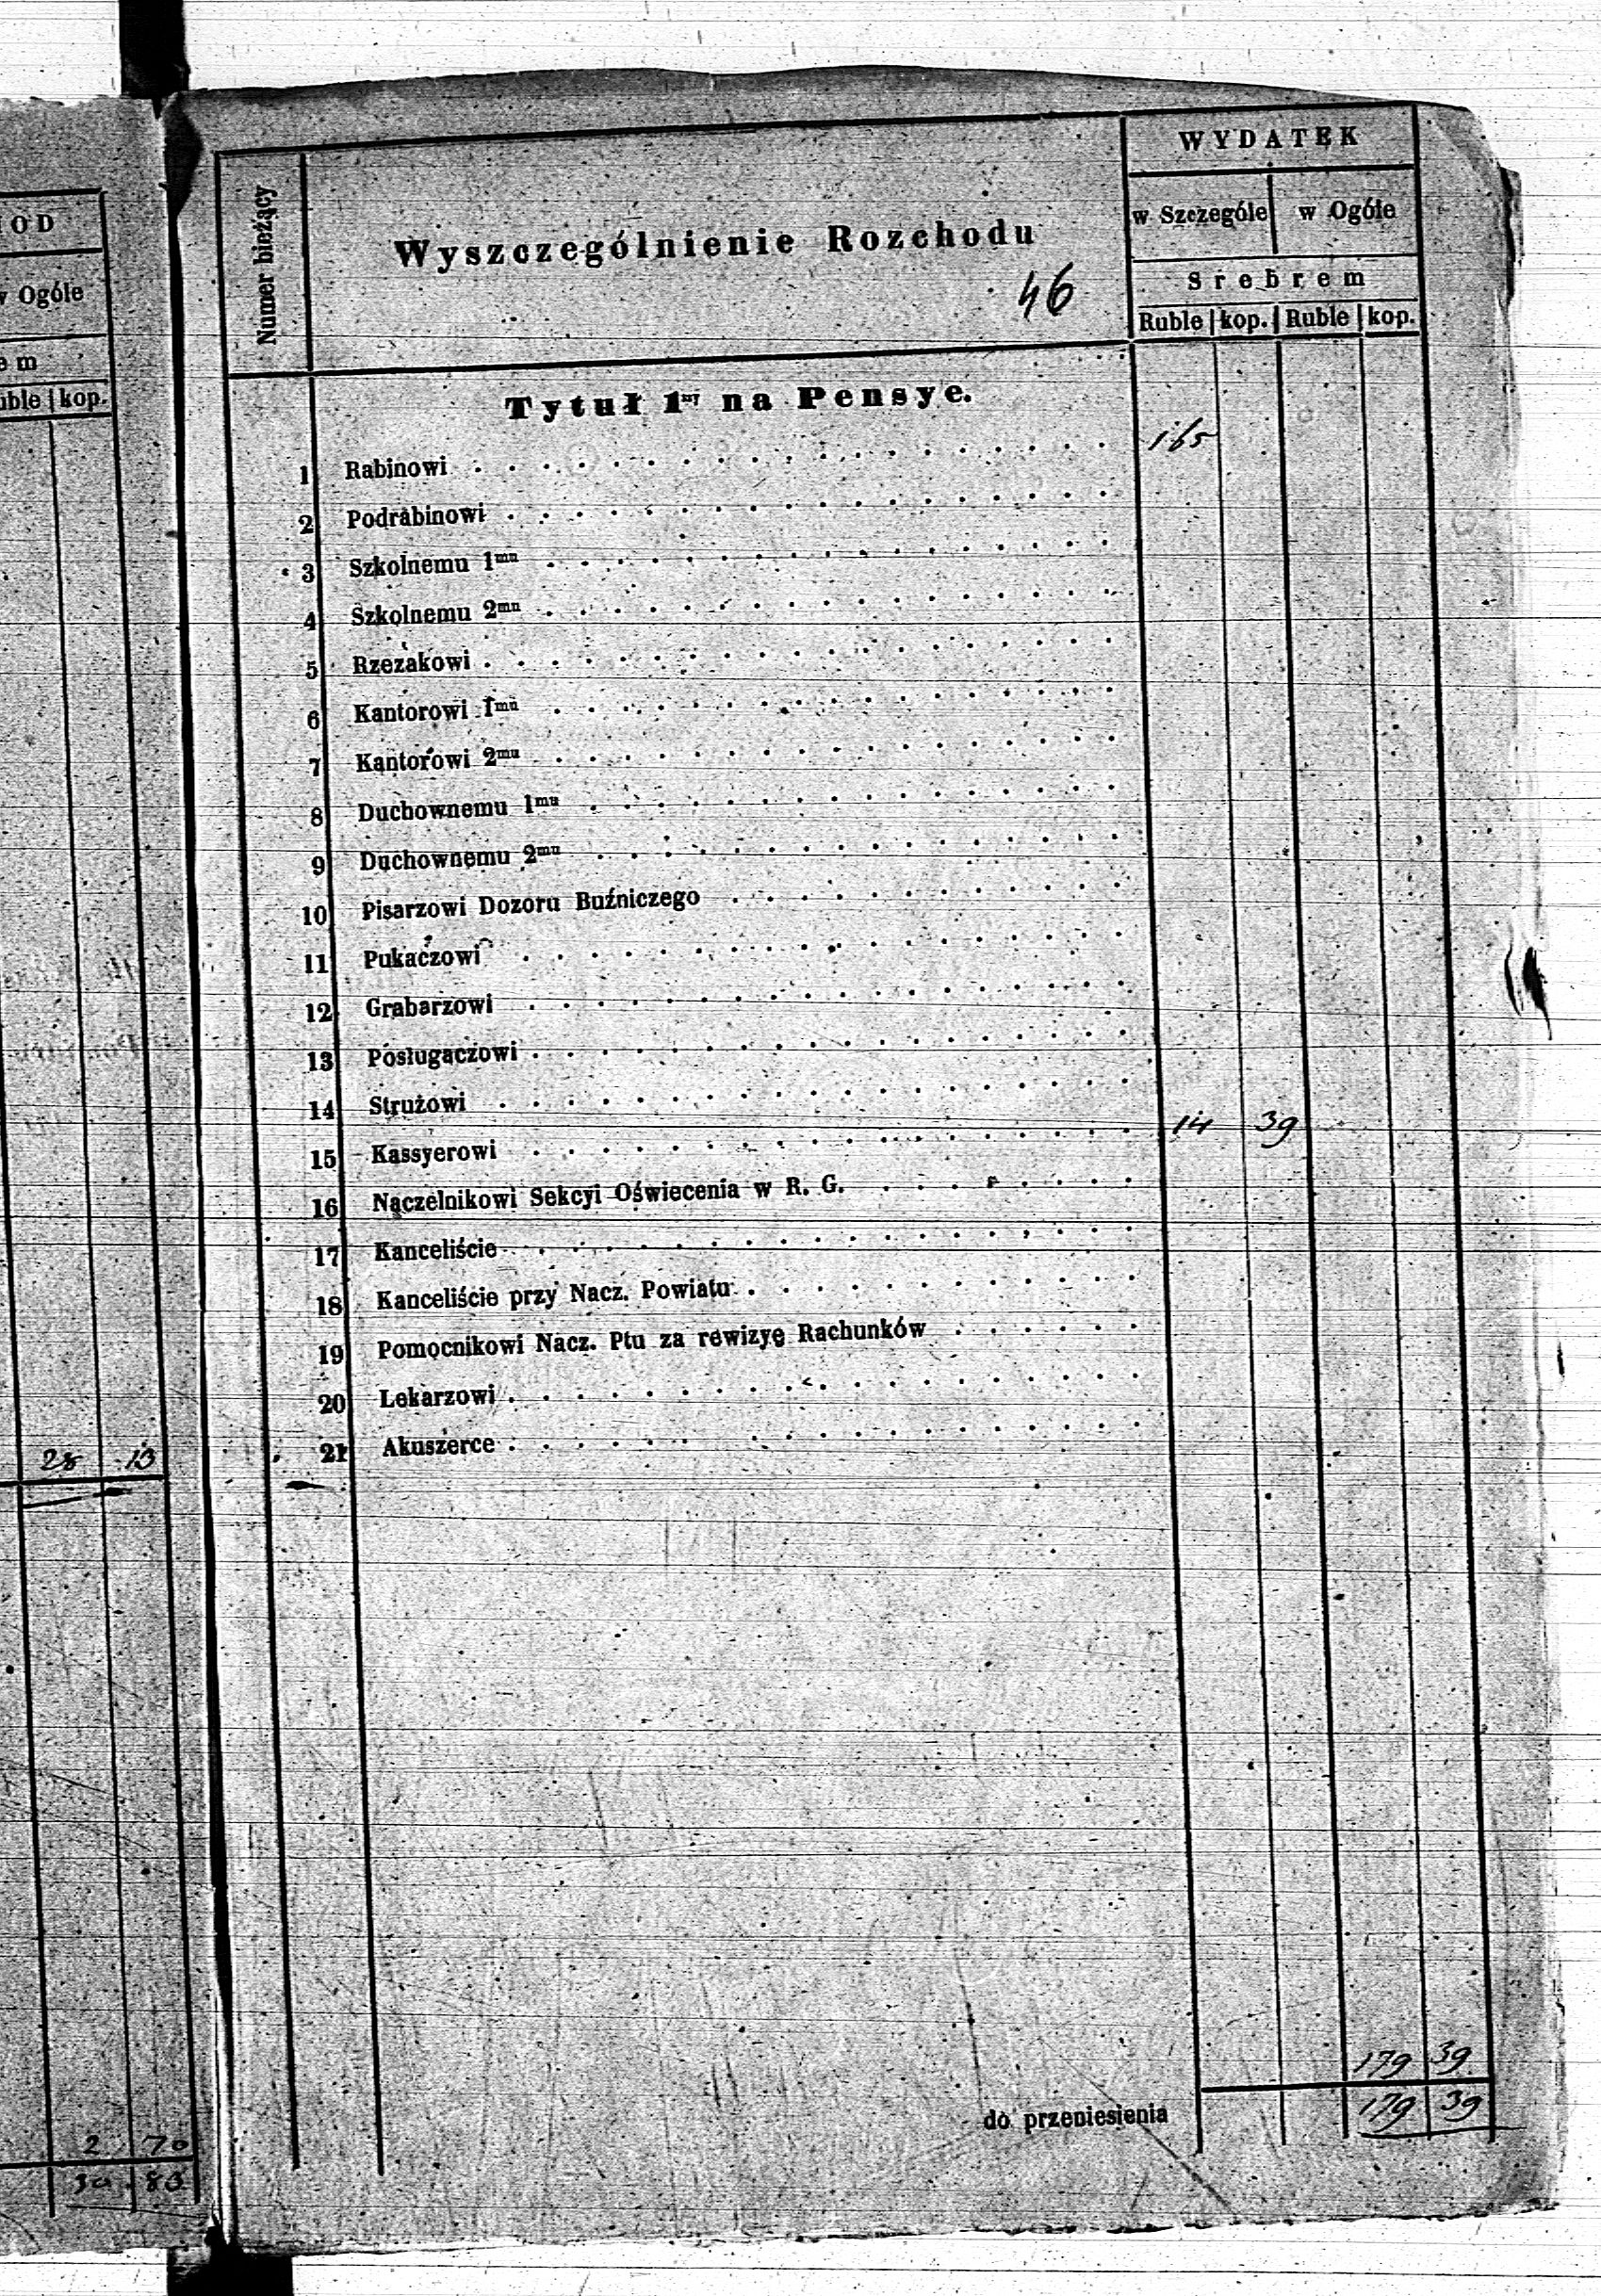 OD
w Ogóle
em
uble kop.
28 13
2 70
30 83
Numer bieżący
Wyszczególnienie Rozchodu
46
WYDATEK
w Szczególe w Ogóle
Srebrem
Ruble kop. Ruble kop.
Tytuł 1szy na Pensye.
1 Rabinowi 165
2 Podrabinowi
3 Szkolnemu 1mu
4 Szkolnemu 2mu
5 Rzezakowi
6 Kantorowi 1mu
7 Kantorowi 2mu
8 Duchownemu 1mu
9 Duchownemu 2mu
10 Pisarzowi Dozoru Buźniczego
11 Pukaczowi
12 Grabarzowi
13 Posługaczowi
14 Strużowi
15 Kassyerowi 14 39
16 Naczelnikowi Sekcyi Oświecenia w R. G.
17 Kanceliście
18 Kanceliście przy Nacz. Powiatu
19 Pomocnikowi Nacz. Ptu za rewizyę Rachunków
20 Lekarzowi
21 Akuszerce
179 39
do przeniesienia 179 39